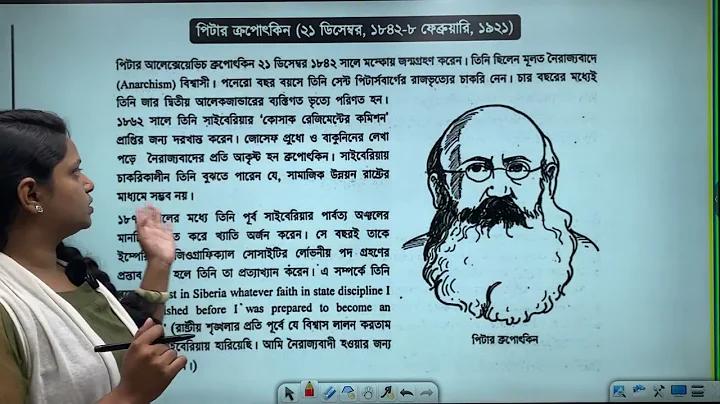 পিটার ক্রপোৎকিন (২১ ডিসেম্বর, ১৮৪২-৮ ফেব্রুয়ারি, ১৯২১)
পিটার আলেক্সেয়েভিচ ক্রপোৎকিন ২১ ডিসেম্বর ১৮৪২ সালে মস্কোয় জন্মগ্রহণ করেন। তিনি ছিলেন মূলত নৈরাজ্যবাদে
(Anarchism) বিশ্বাসী। পনেরো বছর বয়সে তিনি সেন্ট পিটার্সবার্গের রাজভৃত্যের চাকরি নেন। চার বছরের মধ্যেই
তিনি জার দ্বিতীয় আলেকজান্ডারের ব্যক্তিগত ভৃত্যে পরিণত হন।
১৮৬২ সালে তিনি সাইবেরিয়ার 'কোসাক রেজিমেন্টের কমিশন'
প্রাপ্তির জন্য দরখাস্ত করেন। জোসেফ প্রুধো ও বাকুনিনের লেখা
পড়ে নৈরাজ্যবাদের প্রতি আকৃষ্ট হন ক্রপোৎকিন। সাইবেরিয়ায়
চাকরিকালীন তিনি বুঝতে পারেন যে, সামাজিক উন্নয়ন রাষ্ট্রের
মাধ্যমে সম্ভব নয়।
মধ্যে তিনি পূর্ব সাইবেরিয়ার পার্বত্য অঞ্চলের
করে খ্যাতি অর্জন করেন। সে বছরই তাকে
সোসাইটির লোভনীয় পদ গ্রহণের
প্রস্তাব হলে তিনি তা প্রত্যাখ্যান করেন। এ সম্পর্কে তিনি
in Siberia whatever faith in state discipline I
before I was prepared to become an
(রাষ্ট্রীয় শৃঙ্খলার প্রতি পূর্বে যে বিশ্বাস লালন করতাম
হারিয়েছি। আমি নৈরাজ্যবাদী হওয়ার জন্য
পিটার ক্রপোৎকিন